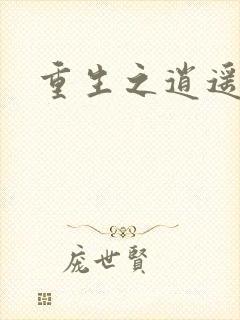 重生之逍遥
庞世賢